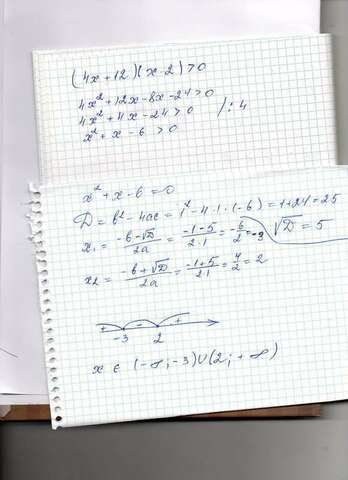 (4x+12)(x-2)>0
4x²+12x-8x-24>0
4x²+4x-24>0 /:4
x²+x-6>0
x²+x-6=0
D=b²-4ac=1²-4·1·(-6)=1+24=25
√D=5
x₁=(-b-√D)/2a=(-1-5)/2·1=-6/2=-3
x₂=(-b+√D)/2a=(-1+5)/2·1=4/2=2
+ - +
-3 2
x ∈ (-∞;-3)∪(2;+∞)